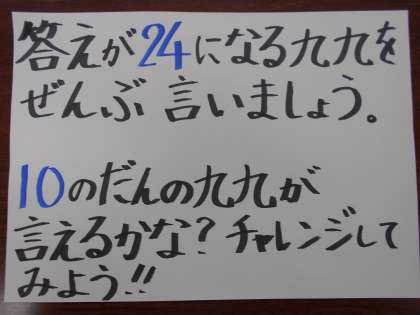 答えが24になる九九を
ぜんぶ 言いましょう。
10のだんの九九が
言えるかな? チャレンジして
みよう!!